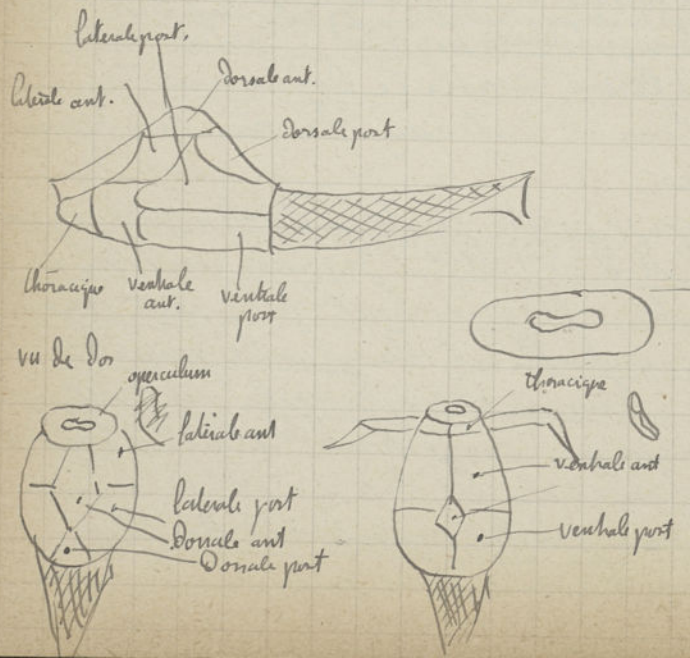 laterale post.
laterale ant.
Dorsale ant.
Dorsale post
thoracique
ventrale
ant.
ventrale
post
vu de Dos
operculum
laterale ant
laterale post
Dorsale ant
Dorsale post
thoracique
ventrale ant
ventrale post